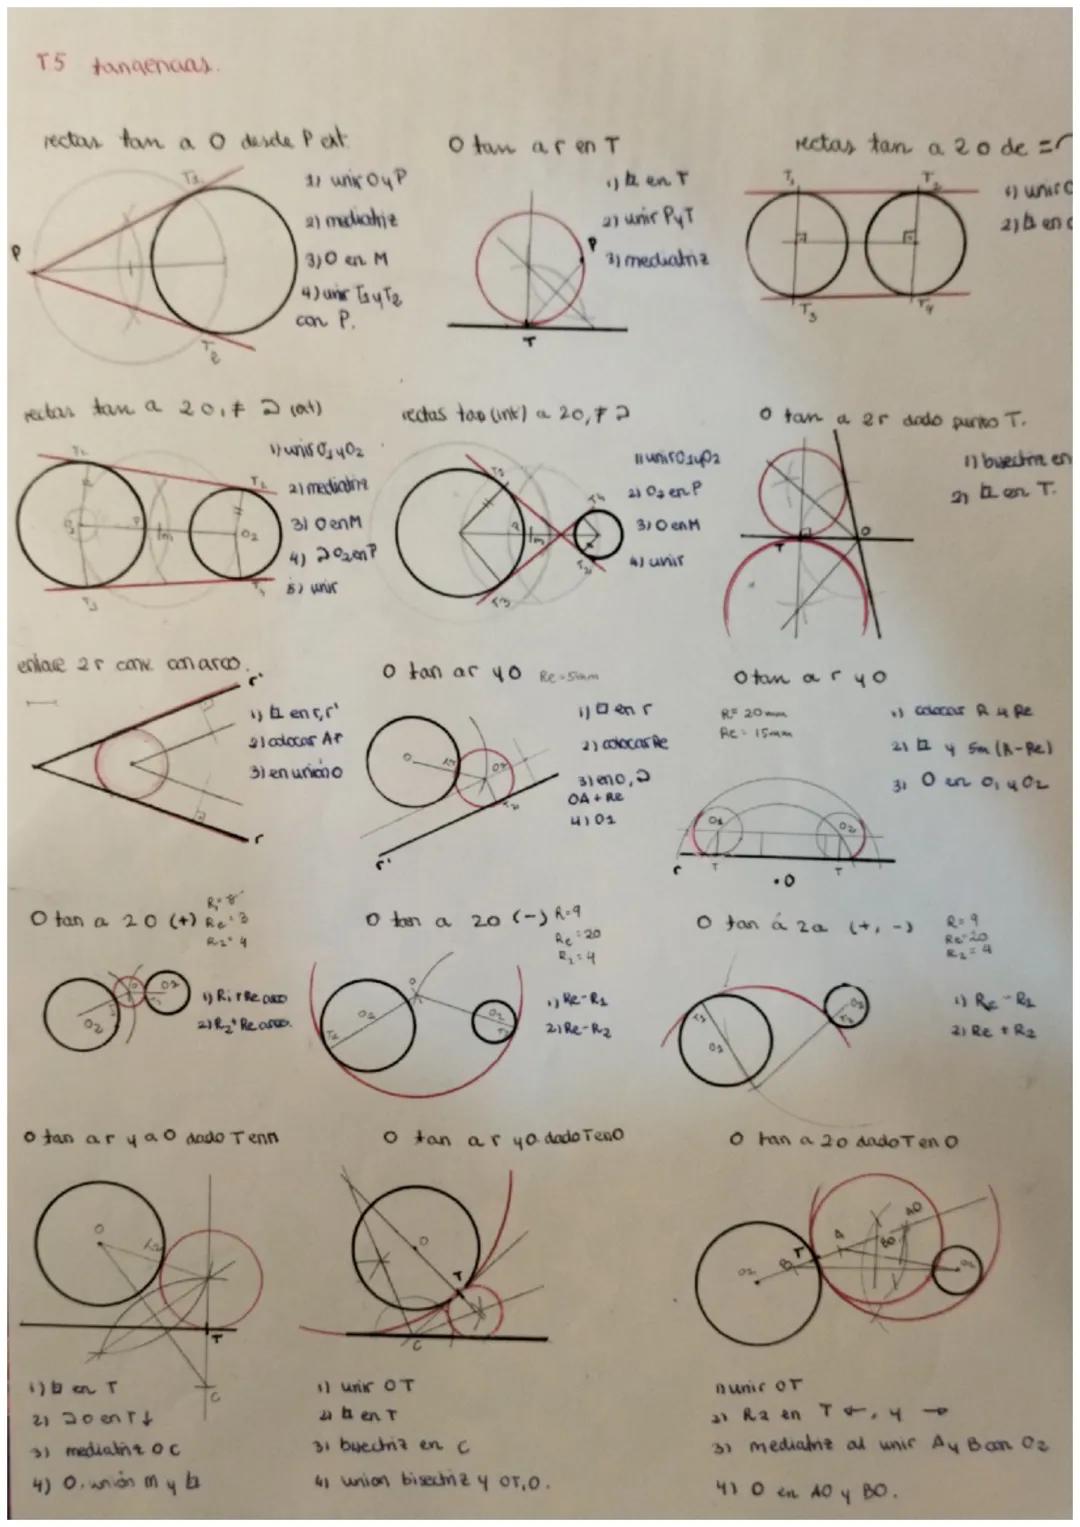 T5 tangencias.
rectas tan a O desde P ext.
1) unir O y P
2) mediatriz
3) O en M
4) unir T1 y T2
con P.
P
T1
T2
O tan a r en T
1) ⊾ en T
2) unir P y T
3) mediatriz
P
T
rectas tan a 2 O de = r
1) unir O
2) ⊾ en
T1
T2
T3
T4
rectas tan a 2 O, ≠ ⊃ (ext)
1) unir O1 y O2
2) mediatriz
3) O en M
4) ⊃ O2 en P
5) unir
P
m
O2
rectas tan (int) a 2 O, ≠ ⊃
1) unir O1 y O2
2) O2 en P
3) O en M
4) unir
T2
T4
m
T3
O tan a 2r dado punto T.
1) bisectriz en
2) ⊾ en T.
T
O
enlace 2 r conv. con arco.
1) ⊾ en r, r'
2) colocar Ar
3) en unión O
r'
r
O tan a r y O Re = 5mm
1) ⊾ en r
2) colocar Re
3) en O, ⊃
OA + Re
4) O1
O
r'
O tan a r y O
R = 20mm
Re = 15mm
1) colocar R y Re
2) ⊾ y 5m (R-Re)
3) O en O1 y O2
O1
O2
r
T
T
·O
O tan a 2 O (+)
R1 = 8
Re = 3
R2 = 4
1) R1 + Re arco
2) R2 + Re arco.
O2
O2
O tan a 2 O (-)
R = 9
Re = 20
R2 = 4
1) Re - R1
2) Re - R2
O2
O2
O tan a 2 a (+, -)
R = 9
Re = 20
R2 = 4
1) Re - R1
2) Re + R2
O1
O2
O tan a r y a O dado T en r
O
T
C
1) ⊾ en T
2) ⊃ O en T ↓
3) mediatriz O C
4) O, unión m y ⊾
O tan a r y O dado T en O
O
T
C
1) unir OT
2) ⊾ en T
3) bisectriz en C
4) union bisectriz y OT, O.
O tan a 2 O dado T en O
O2
B
T
A
BO
AO
1) unir OT
2) R2 en T ←, y →
3) mediatriz al unir A y B con O2
4) O en AO y BO.